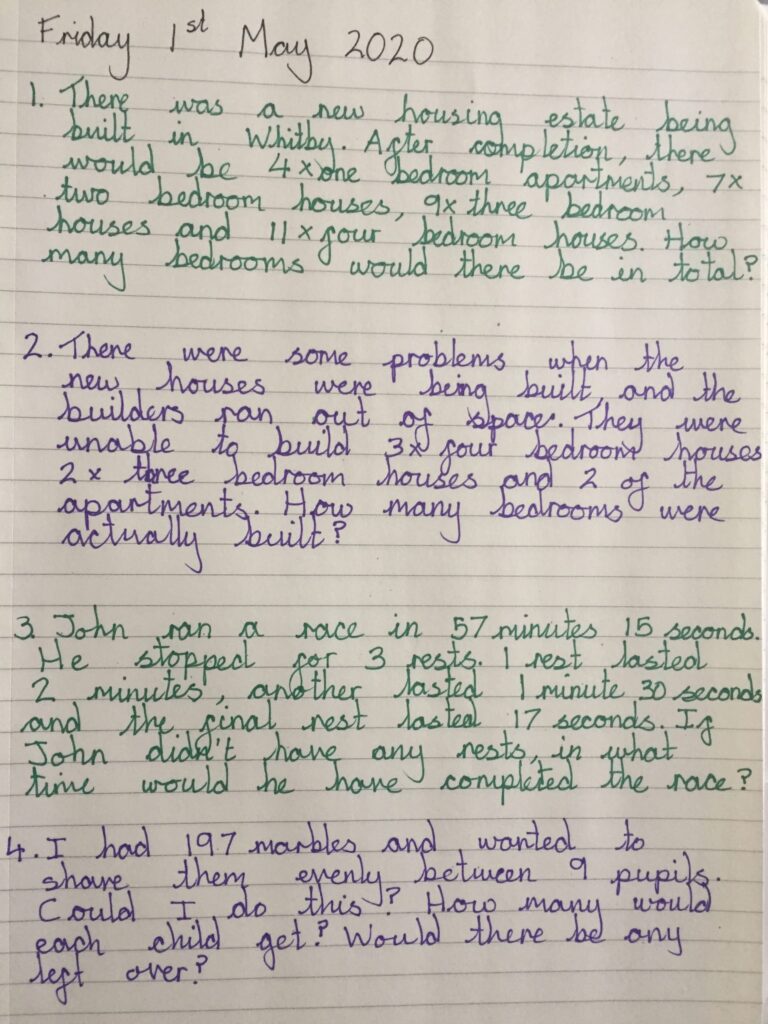 Friday 1st May 2020
1. There was a new housing estate being
built in Whitby. After completion, there
would be 4 x one bedroom apartments, 7x
two bedroom houses, 9x three bedroom
houses and 11 x four bedroom houses. How
many bedrooms would there be in total?
2. There were some problems when the
new houses were being built, and the
builders ran out of space. They were
unable to build 3x four bedroom houses
2 x three bedroom houses and 2 of the
apartments. How many bedrooms were
actually built?
3. John ran a race in 57 minutes 15 seconds.
He stopped for 3 rests. 1 rest lasted
2 minutes, another lasted 1 minute 30 seconds
and the final rest lasted 17 seconds. If
John didn't have any rests, in what
time would he have completed the race?
4. I had 197 marbles and wanted to
share them evenly between 9 pupils.
Could I do this? How many would
each child get? Would there be any
left over?